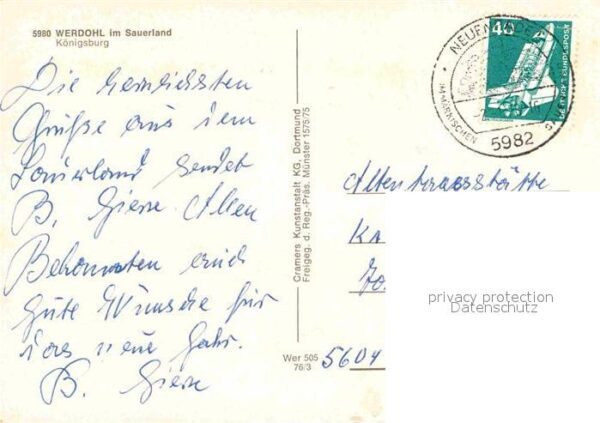 5980 WERDOHL im Sauerland
Königsburg
Die herzlichsten
Grüße aus dem
Sauerland sendet
B. Giese Allen
Bekannten auch
gute Wünsche für
das neue Jahr.
B. Giese
Cramers Kunstanstalt KG, Dortmund
Freigeg. d. Reg.-Präs. Münster 1575/75
Wer 505
76/3
NEUENRADE
IM MÄRKISCHEN
5982
40
DEUTSCHE BUNDESPOST
Altentagesstätte
KA
5604
privacy protection
Datenschutz